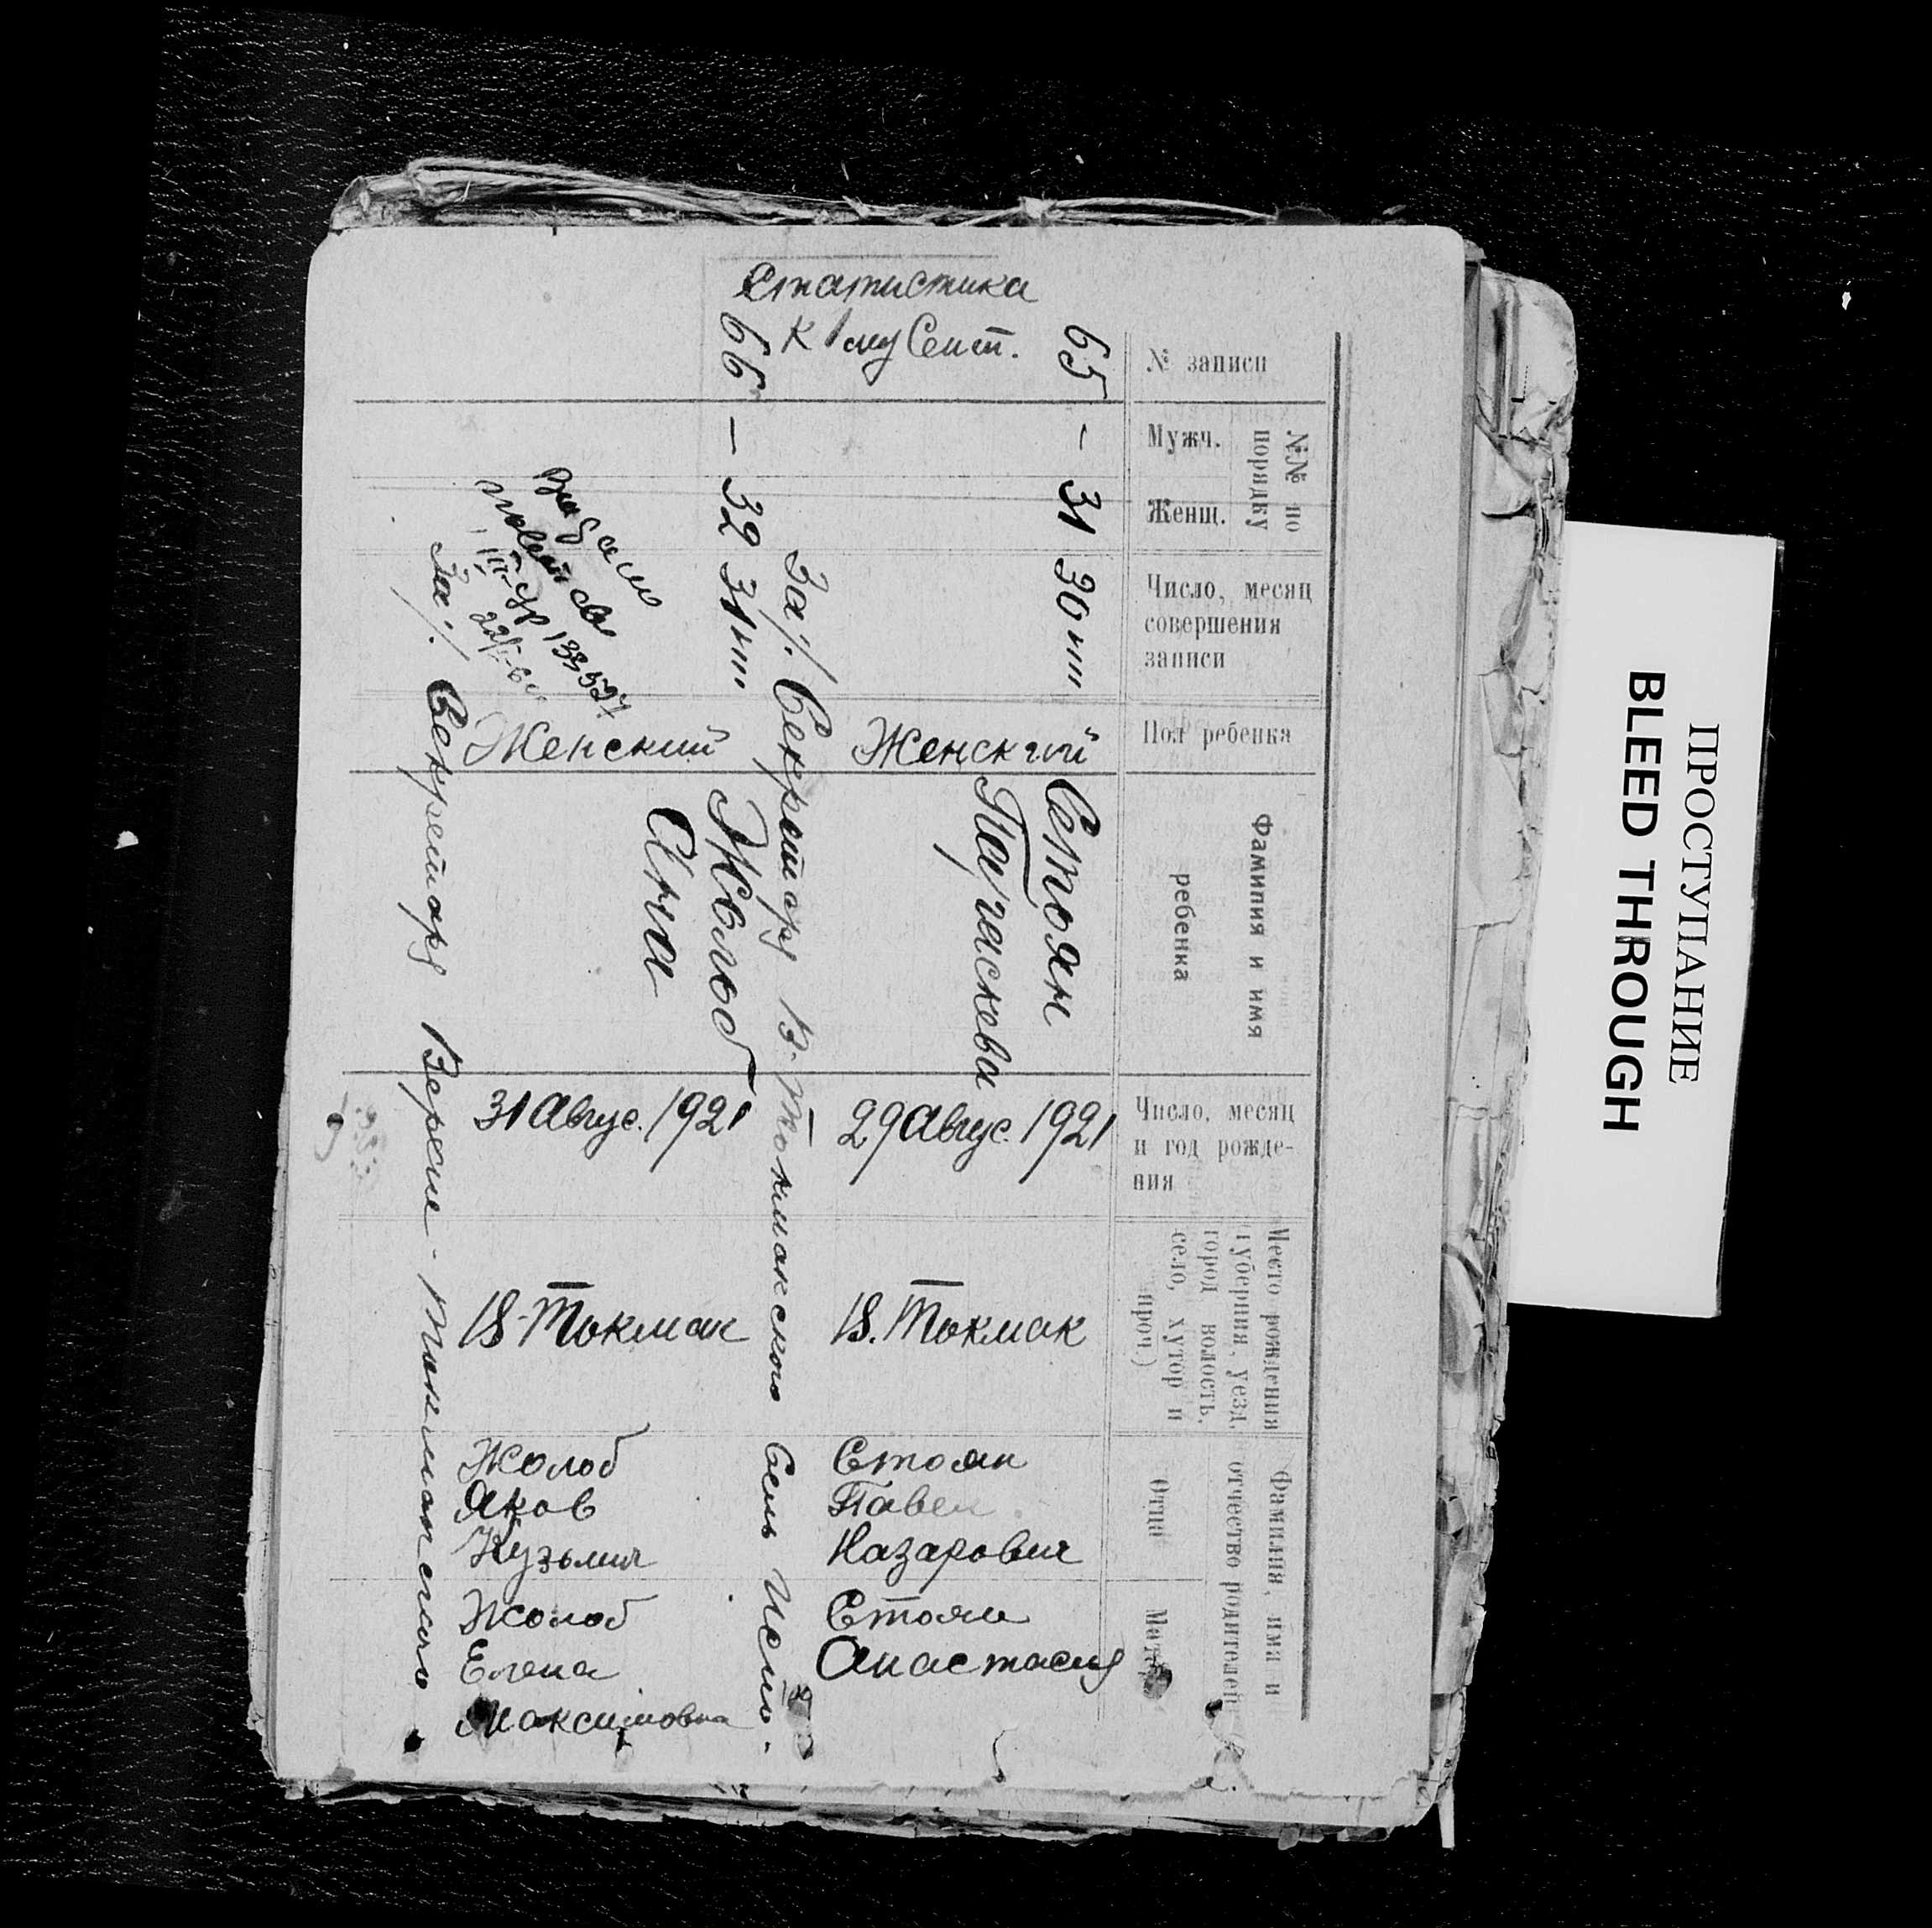 № записи
№№ по
порядку
Мужч.
Женщ.
Число, месяц
совершения
записи
Пол ребенка
Фамилия и имя
ребенка
Число, месяц
и год рожде-
ния
Место рождения
(губерния, уезд,
город волость,
село, хутор и
проч.)
Фамилия, имя и
отчество родителей
Отца
Матер
65
-
31
30
Женский
Стоян
Параскева
29 Авгус. 1921
В. Токмак
Стоян
Павел
Назарович
Стоян
Анастасия
Статистика
к 1му Сент.
За/. Секретарь В. Токмакского Сель Испо.
66
-
32
31
Женский
Жолоб
Анна
31 Авгус. 1921
В-Токмак
Жолоб
Яков
Кузьмич
Жолоб
Елена
Максимовна
За/. Секретарь Верхне-Токмакского
ПРОСТУПАНИЕ
BLEED THROUGH